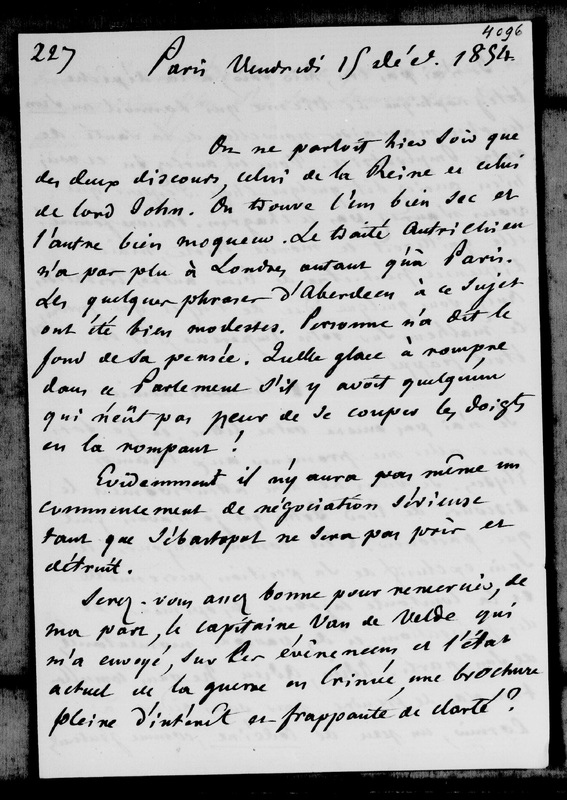 4096
227
Paris Vendredi 15 déc. 1854
On ne parloit hier soir que
des deux discours, celui de la Reine et celui
de lord John. On trouve l'un bien sec et
l'autre bien moqueur. Le traité Autrichien
n'a pas plu à Londres autant qu'à Paris.
Les quelques phrases d'Aberdeen à ce sujet
ont été bien modestes. Personne n'a dit le
fond de sa pensée. Quelle glace à rompre
dans ce Parlement s'il y avoit quelqu'un
qui n'eût pas peur de se couper les doigts
en la rompant !
Evidemment il n'y aura pas même un
commencement de négociation sérieuse
tant que Sébastopol ne sera pas pris et
détruit.
Serez-vous assez bonne pour remercier, de
ma part, le capitaine Van de Velde qui
m'a envoyé, sur les événements et l'état
actuel de la guerre en Crimée, une brochure
pleine d'intérêt et frappante de clarté ?